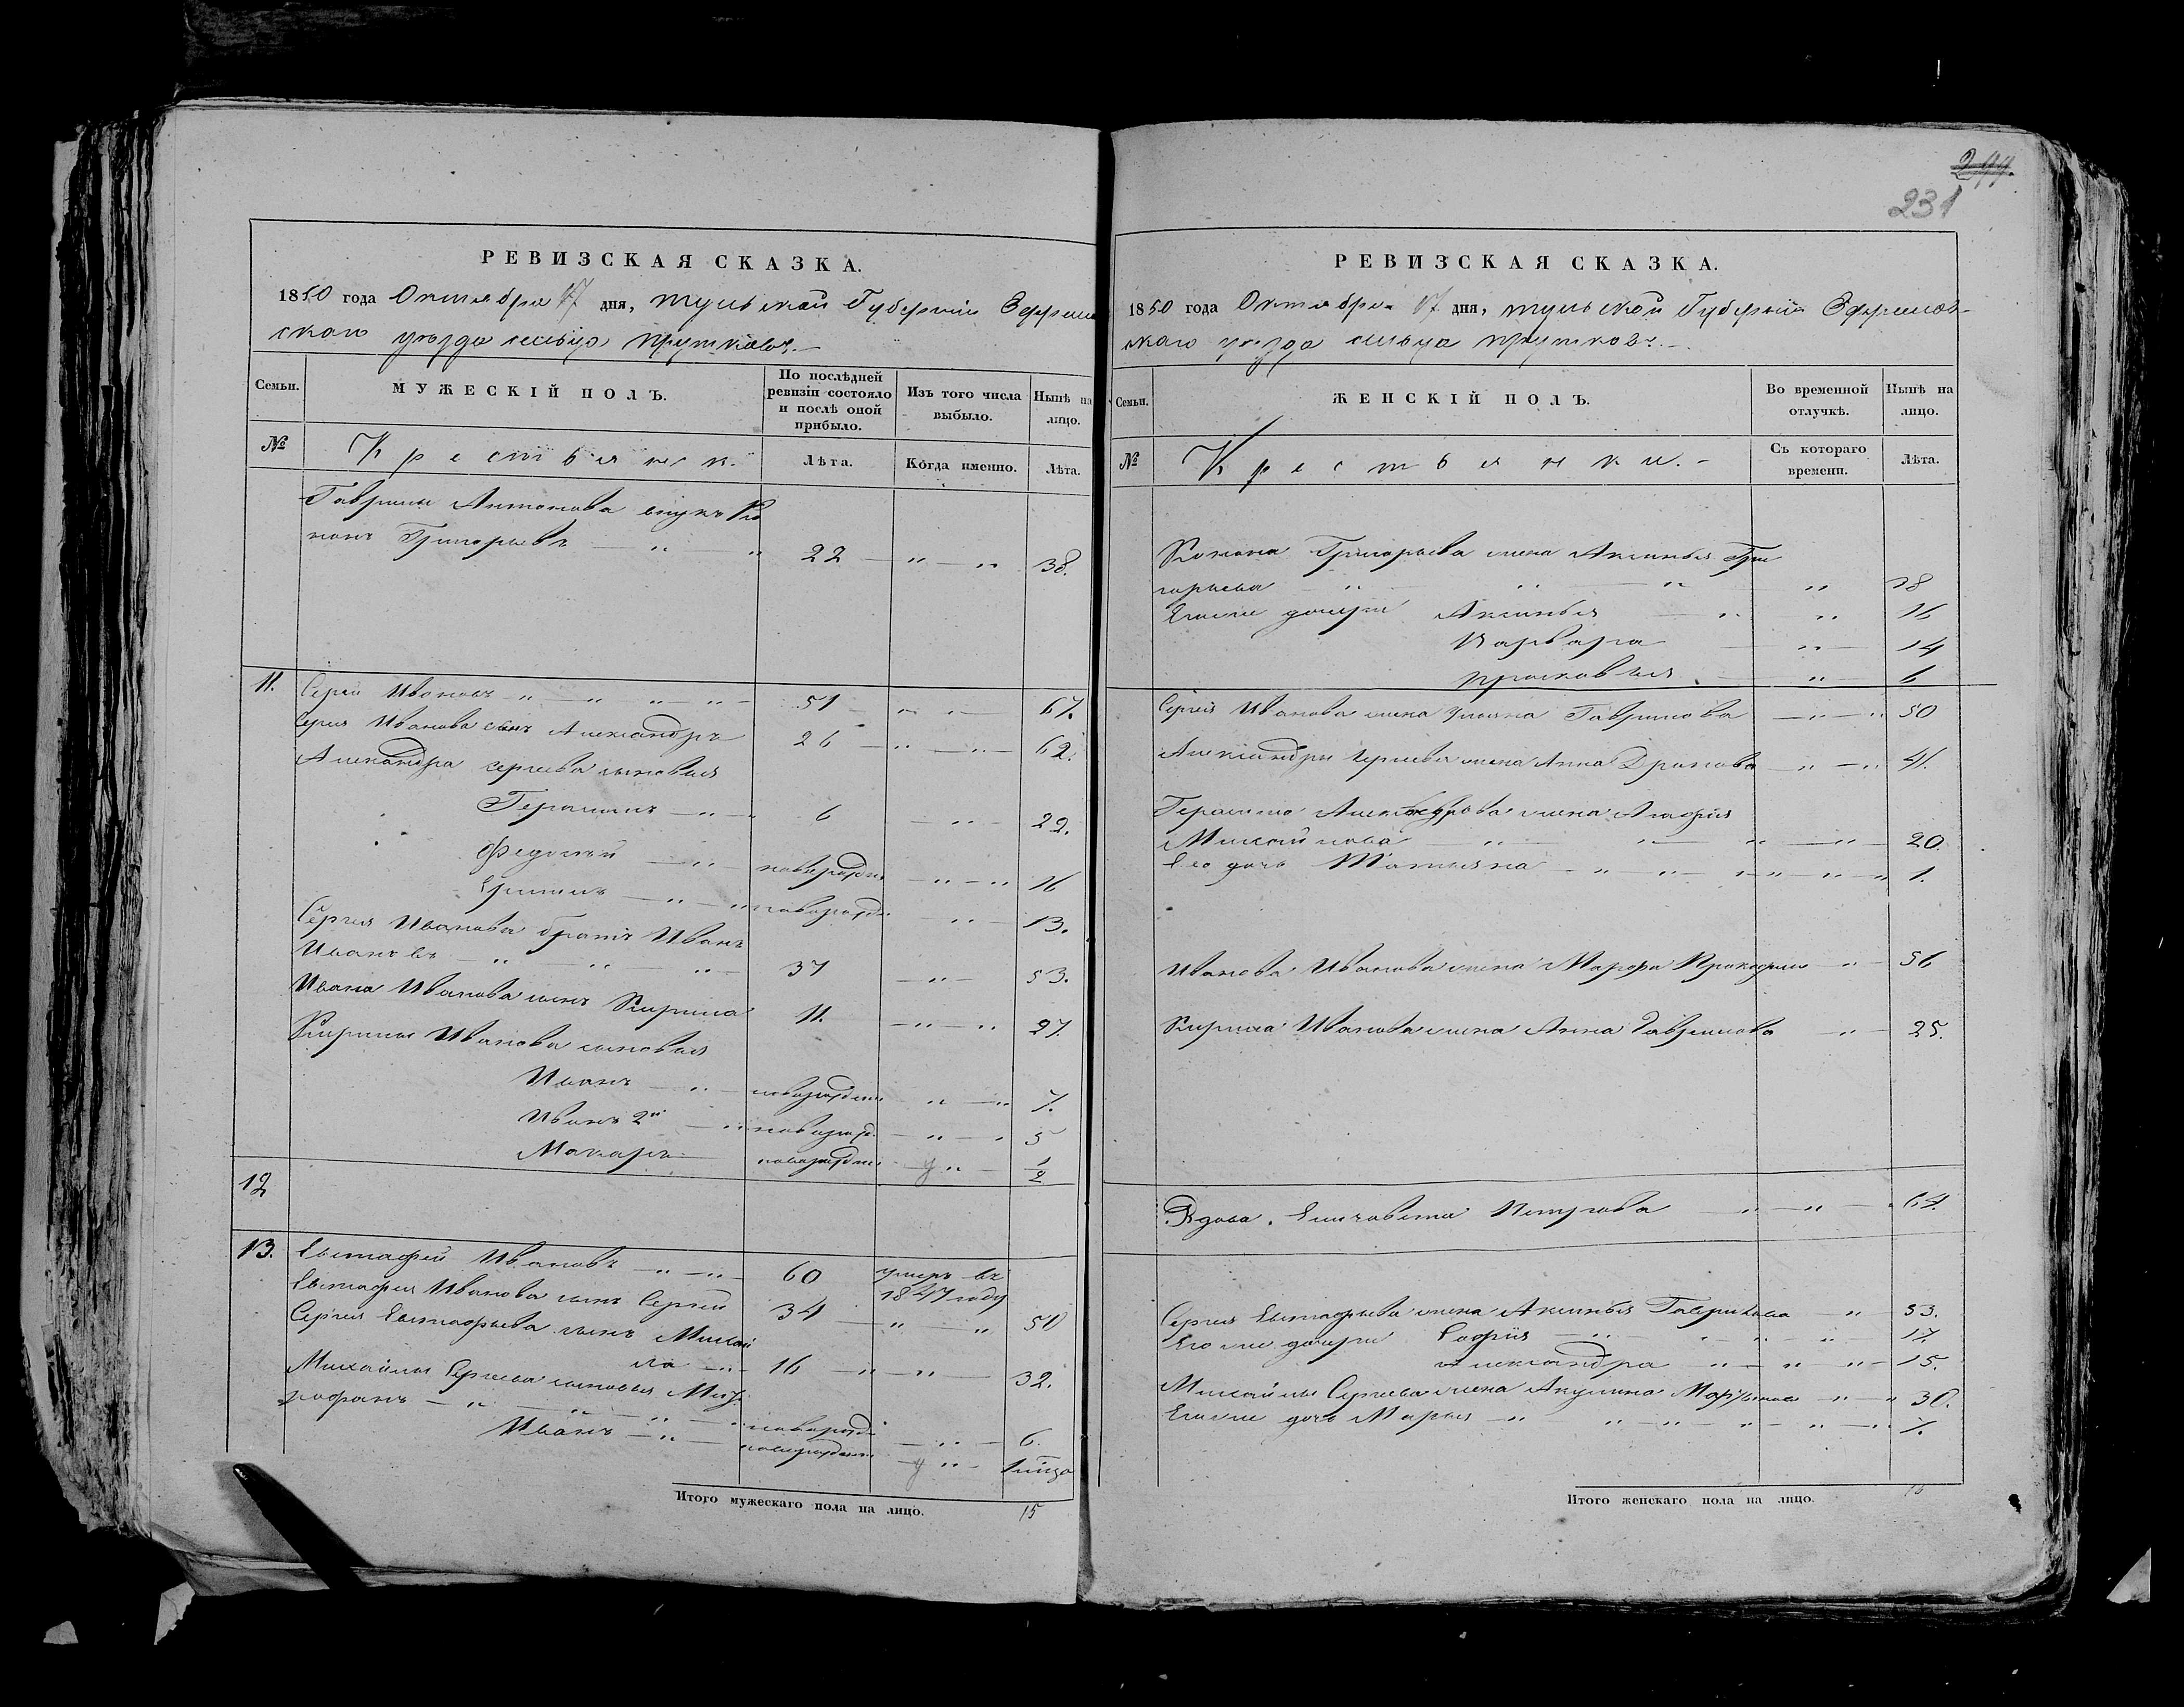 244.
231
РЕВИЗСКАЯ СКАЗКА.
1850 года Октября 17 дня, тульской Губерніи Ефремов
скаго уѣзда сельца прутковъ.
Семьи.
МУЖЕСКІЙ ПОЛЪ.
По послѣдней ревизіи состояло и послѣ оной прибыло.
Изъ того числа выбыло.
Нынѣ на лицо.
№
Крестьяне.
Лѣта.
Когда именно.
Лѣта.
Гаврилы Антонова внукъ Ко
нонъ Григорьевъ 22 38.
11. Сергей Ивановъ 51 67.
Сергея Иванова сынъ Александръ 26 62.
Александра сергеева сыновья
Герасимъ 6 22.
Федосѣй новорожден 16
новорожд 13.
Сергея Иванова братъ Иванъ
Ивановъ 37 53.
Ивана Иванова сынъ Кирила 11. 27.
Кирилы Иванова сыновья
Иванъ новорожден 7.
Иванъ 2й новорожд. 5
Макаръ новорожден 1/2
12
13. Евстафей Ивановъ 60 умеръ въ
1847 году
Евстафея Иванова сынъ Сергей 34 50
Сергея Евстафьева сынъ Михай
ла 16 32.
Михайлы Сергеева сыновья Мит
рофанъ новорожд 6.
Иванъ новорожден
Итого мужескаго пола на лицо. 15
РЕВИЗСКАЯ СКАЗКА.
1850 года Октября 17 дня, тульской Губерніи Ефремов-
скаго уѣзда сельца прутковъ.
Семьи.
ЖЕНСКІЙ ПОЛЪ.
Во временной отлучкѣ.
Нынѣ на лицо.
№
Крестьянки.
Съ котораго времени.
Лѣта.
Конона Григорьева жена Аксинья Гри
горьева 38
Егоже дочери Аксинья 16
Варвара 14
прасковья 6
Сергея Иванова жена Ульяна Гаврилова 50
Александры Сергеева жена Анна 41.
Герасима Александрова жена
Михайлова 20.
Его дочь Татьяна 1.
Иванова Иванова жена Марфа Прокофьи 56
Кирила Иванова жена Анна Гаврилова 25.
Вдова. Елизавета Петрова 64.
Сергея Евстафьева жена Аксинья Гаврилова 53.
Его же дочери Софія 17.
александра 15.
Михайлы Сергеева жена Акулина 30.
Егоже дочь Марья 7.
Итого женскаго пола на лицо.